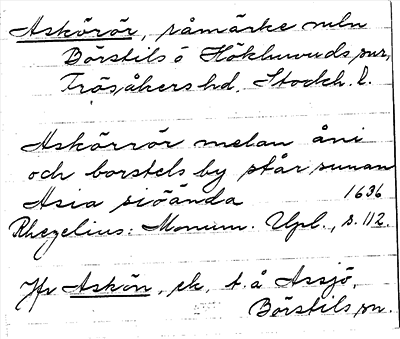 Askörör, råmärke mln
Börstils o Hökhuvuds snr,
Frösåkers hd, Stockh. l.
Askörrör melan åni
och borstels by står sunan
Asia siöända 1636
Rhezelius: Monum. Upl., s. 112.
Jfr Askön, ek, t. å Assjö,
Börstils sn.